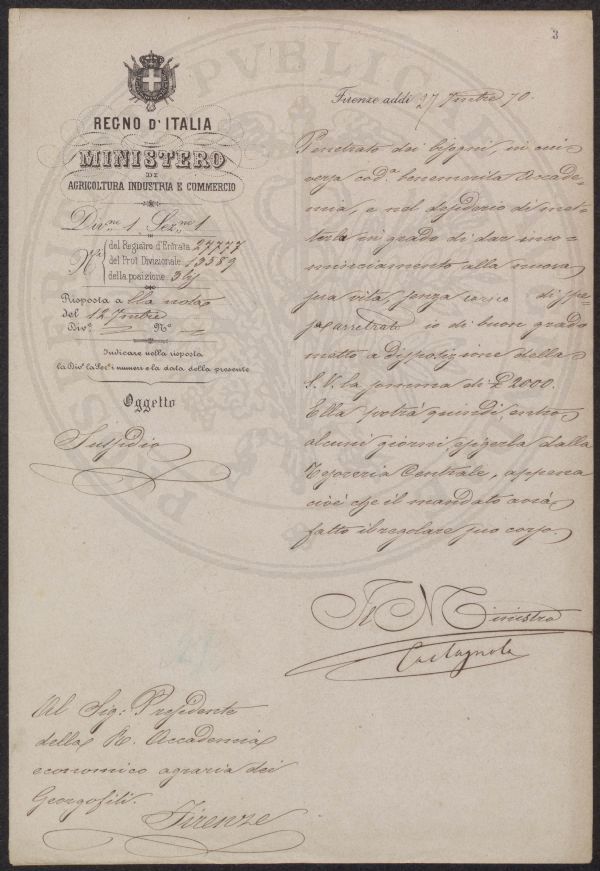 3
REGNO D'ITALIA
MINISTERO
DI
AGRICOLTURA INDUSTRIA E COMMERCIO
Div.ne 1 Sez.ne 1
N.i
del Registro d'Entrata 27777
del Prot Divisionale 13389
della posizione
Risposta a lla nota
del 12 7mbre
Div.e N.o
Indicare nella risposta
la Div.e la Sez.e i numeri e la data della presente
Oggetto
Sussidio
Firenze addì 27 7mbre 70.
Penetrato dei bisogni in cui
versa cod.a benemerita Accade-
mia, e nel desiderio di met-
terla in grado di dar inco-
minciamento alla nuova
sua vita, senza di spe-
sa arretrata io di buon grado
metto a disposizione della
S. V. la somma di £ 2000.
Ella potrà quindi entro
alcuni giorni esigerla dalla
Tesoreria Centrale, appena
cioè che il mandato avrà
fatto il regolare suo corso.
Il Ministro
Castagnola
Al Sig: Presidente
della R. Accademia
economico agraria dei
Georgofili.
Firenze